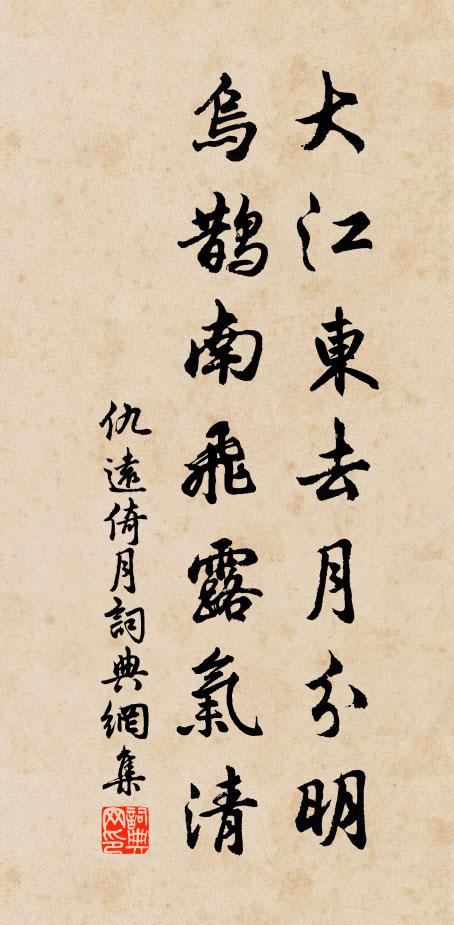 大江東去月分明
烏鵲南飛露氣清
仇遠倚月詞典網集
詞典网印